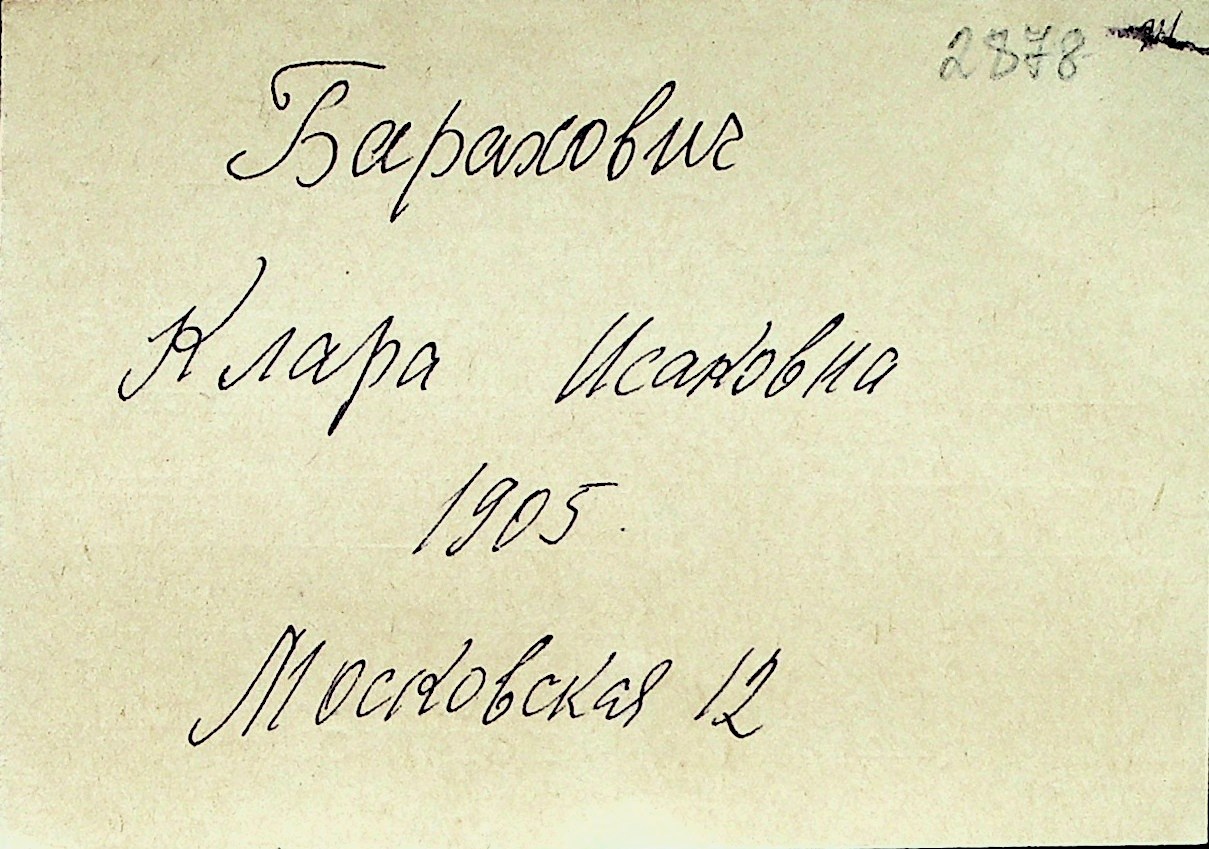 2878
Барахович
Клара Исаковна
1905.
Московская 12